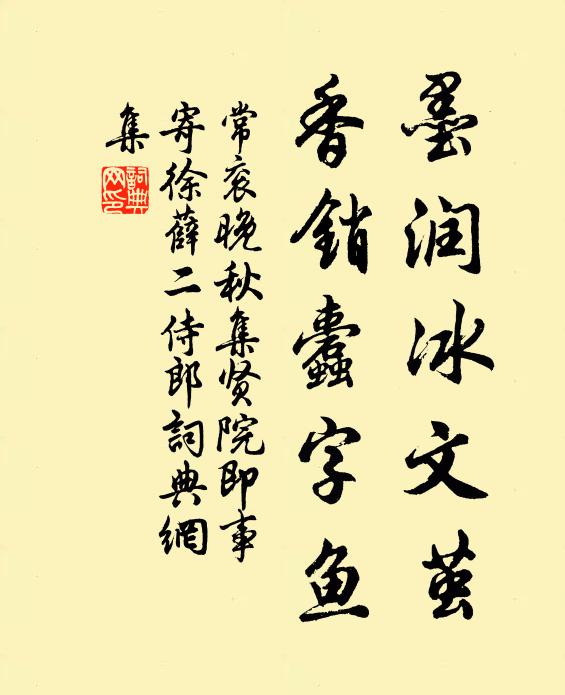 墨润冰文茧
香销蠹字鱼
常衮晚秋集贤院即事
寄徐薛二侍郎詞典網
集
詞典
网印